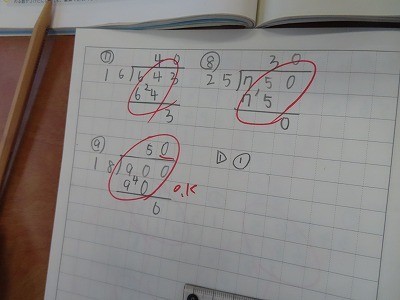 ⑦ 40
16)643
6²4
3
⑧ 30
25)750
7¹5
0
⑨ 50
18)900
9⁴0 O.K
0
▷ ①